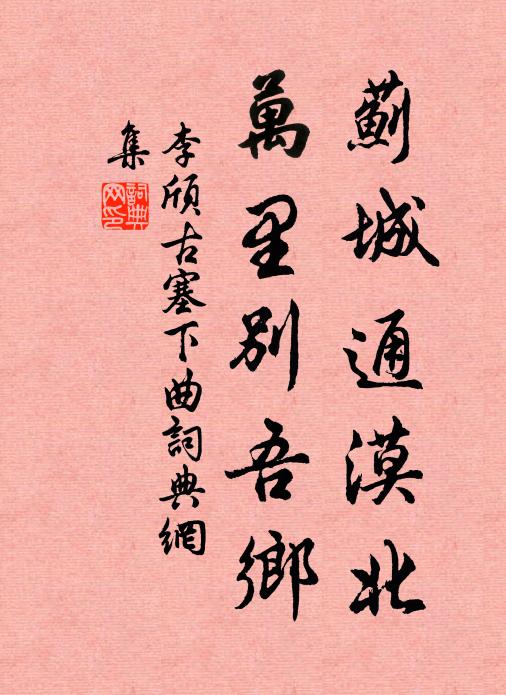 薊城通漠北
萬里別吾鄉
李頎古塞下曲詞典網
集
詞典网印